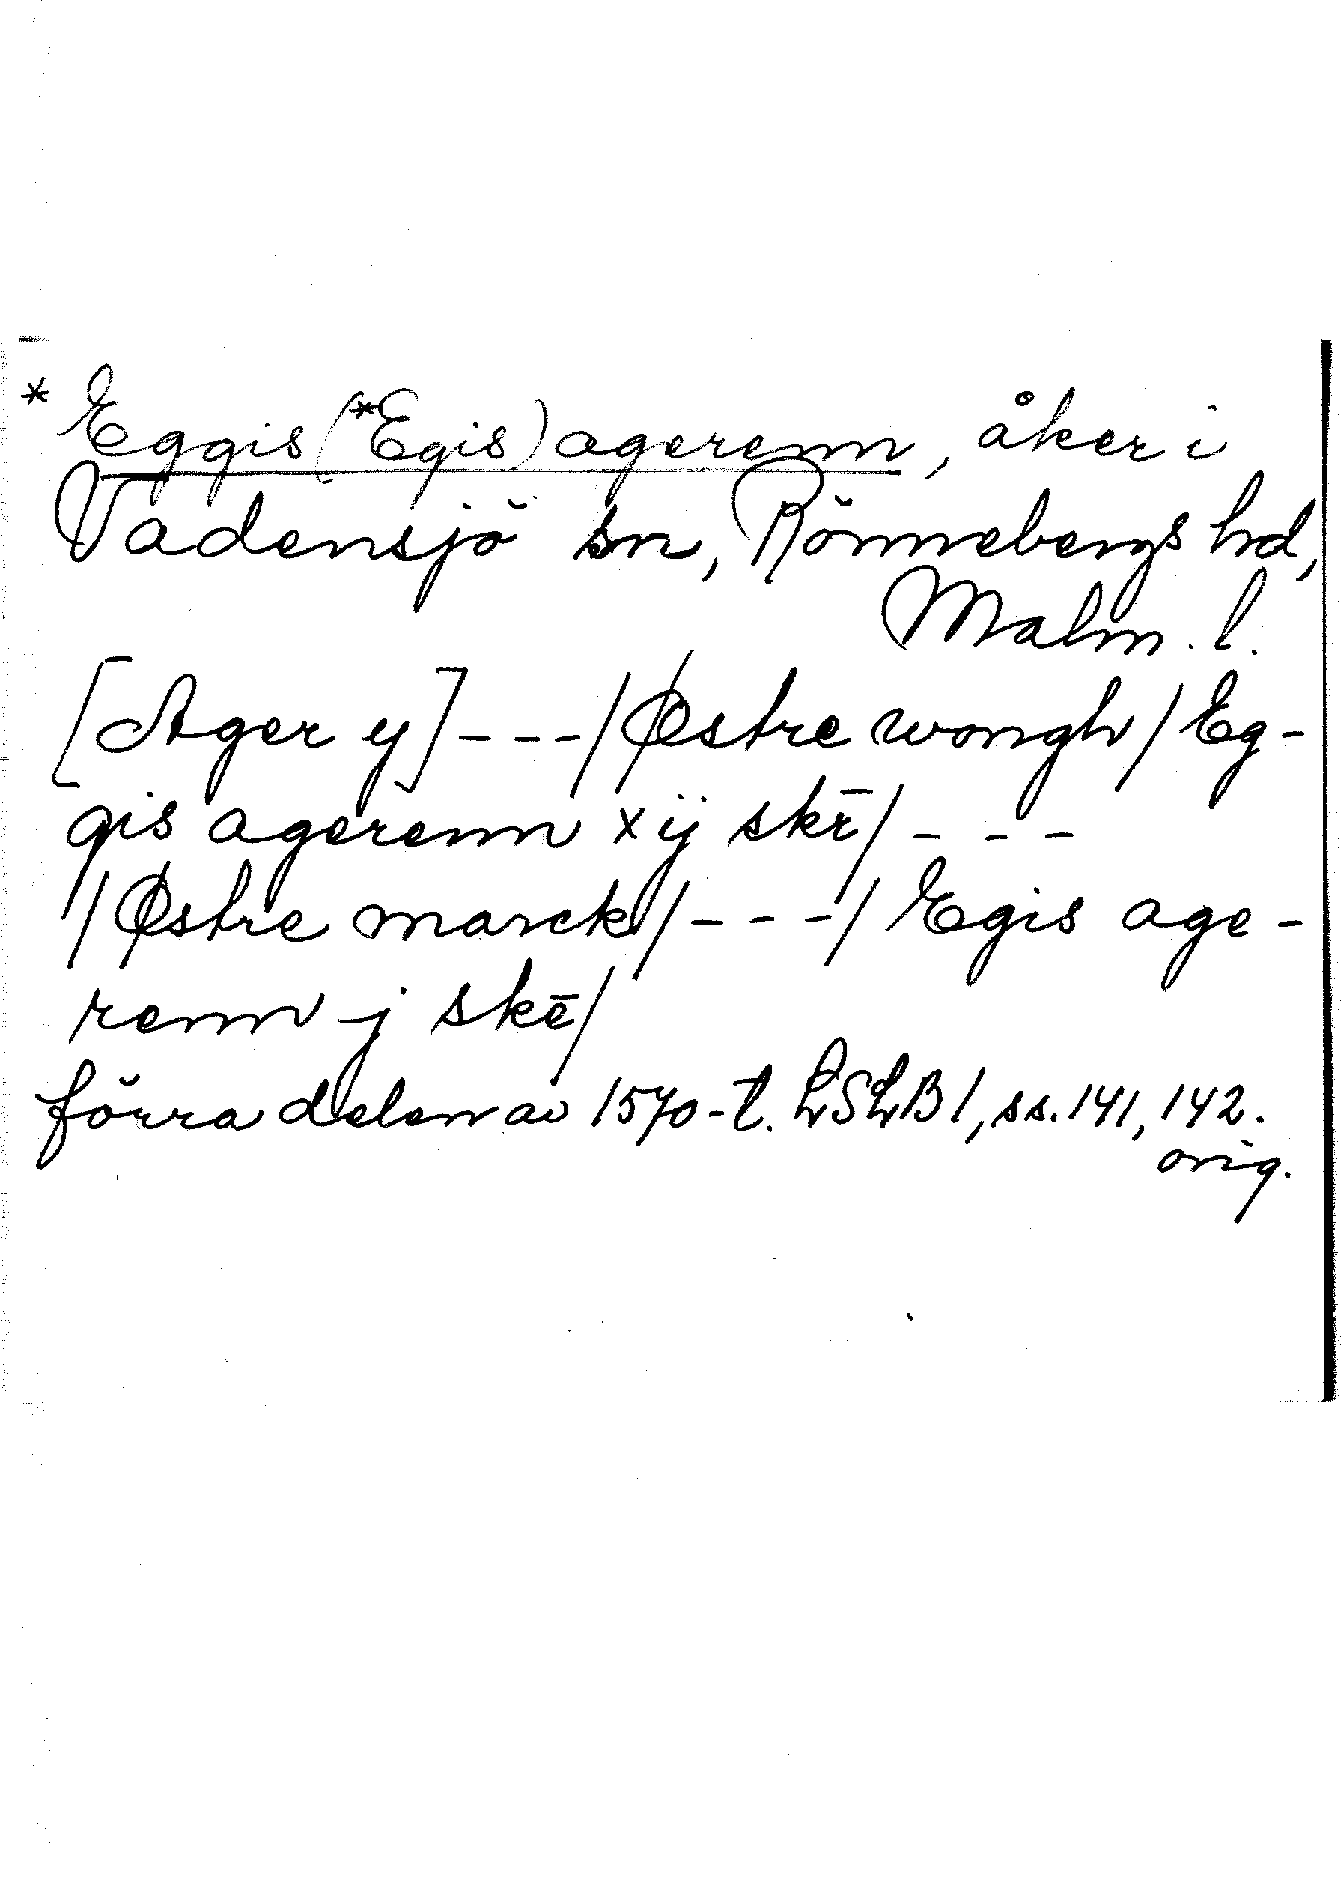 * Eggis (*Egis) agerenn, åker i
Vadensjö sn, Rönnebergs hd,
Malm. l.
[Ager y] --- / Østre wongh / Eg-
gis agerenn xij skē / ---
/ Østre marck / --- / Egis age-
renn j skē /
förra delen av 1570-t. LSLB 1, ss. 141, 142.
orig.